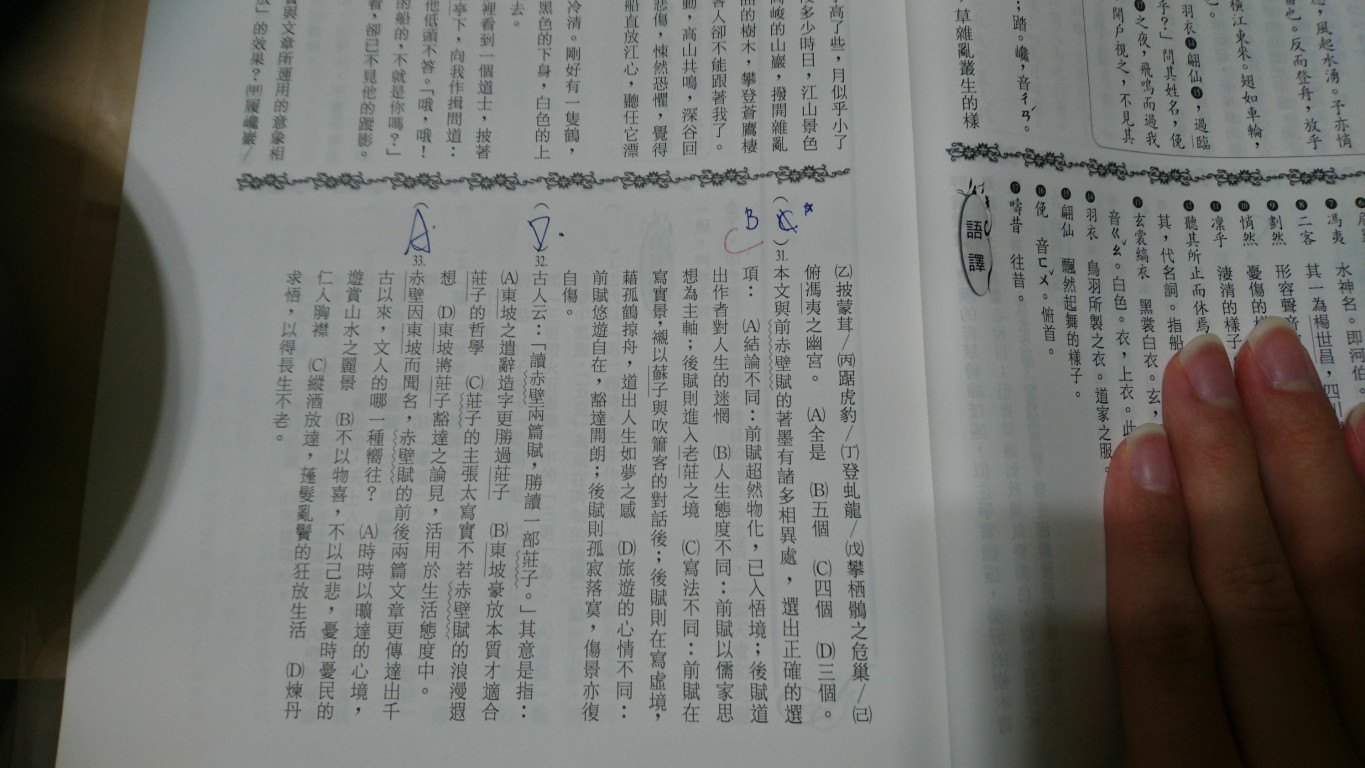 ，風起水湧。予亦悄
也。反而登舟，放乎
橫江東來。翅如車輪，
羽衣⓮翩仙⓯，過臨
乎？」問其姓名，俛
之夜，飛鳴而過我
開戶視之，不見其
；踏。巉，音ㄔㄢˊ。
草雜亂叢生的樣
❼馮夷　水神名。即河伯。
❽二客　其一為楊世昌，四川
❾劃然　形容聲音
❿悄然　憂傷的
⓫凜乎　淒清的樣子
⓬聽其所止而休焉
其，代名詞。指船
⓭玄裳縞衣　黑裳白衣。玄，
音ㄍㄠˇ。白色。衣，上衣。此
⓮羽衣　鳥羽所製之衣。道家之服。
⓯翩仙　飄然起舞的樣子。
⓰俛　音ㄈㄨˇ。俯首。
⓱疇昔　往昔。
語譯
高了些，月似乎小了
多少時日，江山景色
高峻的山巖，撥開雜亂
曲的樹木，攀登蒼鷹棲
客人卻不能跟著我了。
動，高山共鳴，深谷回
悲傷，悚然恐懼，覺得
船直放江心，聽任它漂
冷清。剛好有一隻鶴，
黑色的下身，白色的上
去。
裡看到一個道士，披著
亭下，向我作揖問道：
他低頭不答。「哦，哦！
的船的，不就是你嗎？」
看，卻已不見他的蹤影。
與文章所運用的意象相
」的效果？㈙履巉巖／
㈚披蒙茸／㈛踞虎豹／㈜登虬龍／㈝攀栖鶻之危巢／㈞
俯馮夷之幽宮。　(A)全是　(B)五個　(C)四個　(D)三個。
B
（　）31.本文與前赤壁賦的著墨有諸多相異處，選出正確的選
項：　(A)結論不同：前賦超然物化，已入悟境；後賦道
出作者對人生的迷惘　(B)人生態度不同：前賦以儒家思
想為主軸；後賦則進入老莊之境　(C)寫法不同：前賦在
寫實景，襯以蘇子與吹簫客的對話後；後賦則在寫虛境，
藉孤鶴掠舟，道出人生如夢之感　(D)旅遊的心情不同：
前賦悠遊自在，豁達開朗；後賦則孤寂落寞，傷景亦復
自傷。
（D）32.古人云：「讀赤壁兩篇賦，勝讀一部莊子。」其意是指：
(A)東坡之遣辭造字更勝過莊子　(B)東坡豪放本質才適合
莊子的哲學　(C)莊子的主張太寫實不若赤壁賦的浪漫遐
想　(D)東坡將莊子豁達之論見，活用於生活態度中。
（A）33.赤壁因東坡而聞名，赤壁賦的前後兩篇文章更傳達出千
古以來，文人的哪一種嚮往？　(A)時時以曠達的心境，
遊賞山水之麗景　(B)不以物喜，不以己悲，憂時憂民的
仁人胸襟　(C)縱酒放達，蓬髮亂鬢的狂放生活　(D)煉丹
求悟，以得長生不老。